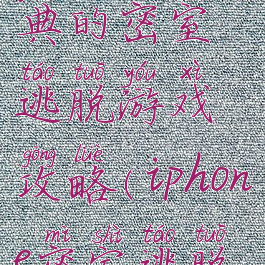 典的密室
táo tuō yóu xì
逃脱游戏
gōng lüè
攻略(iphon
mì shì táo tuō
e密室逃脱